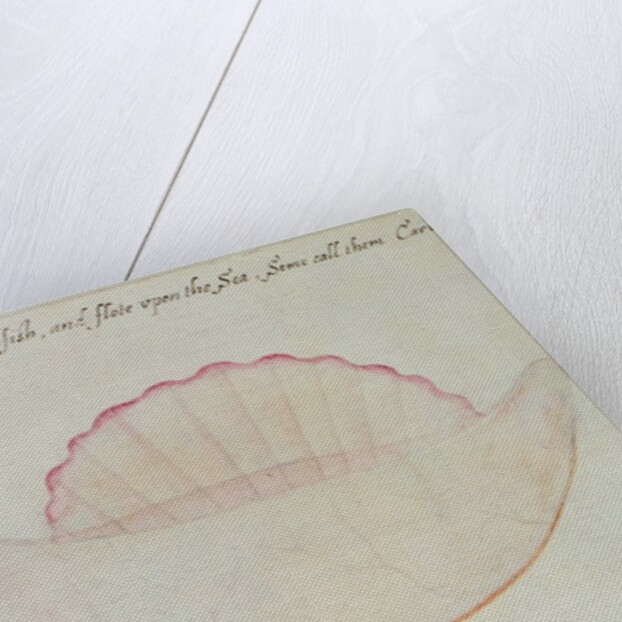 fish, and flote vpon the Sea. Some call them Car